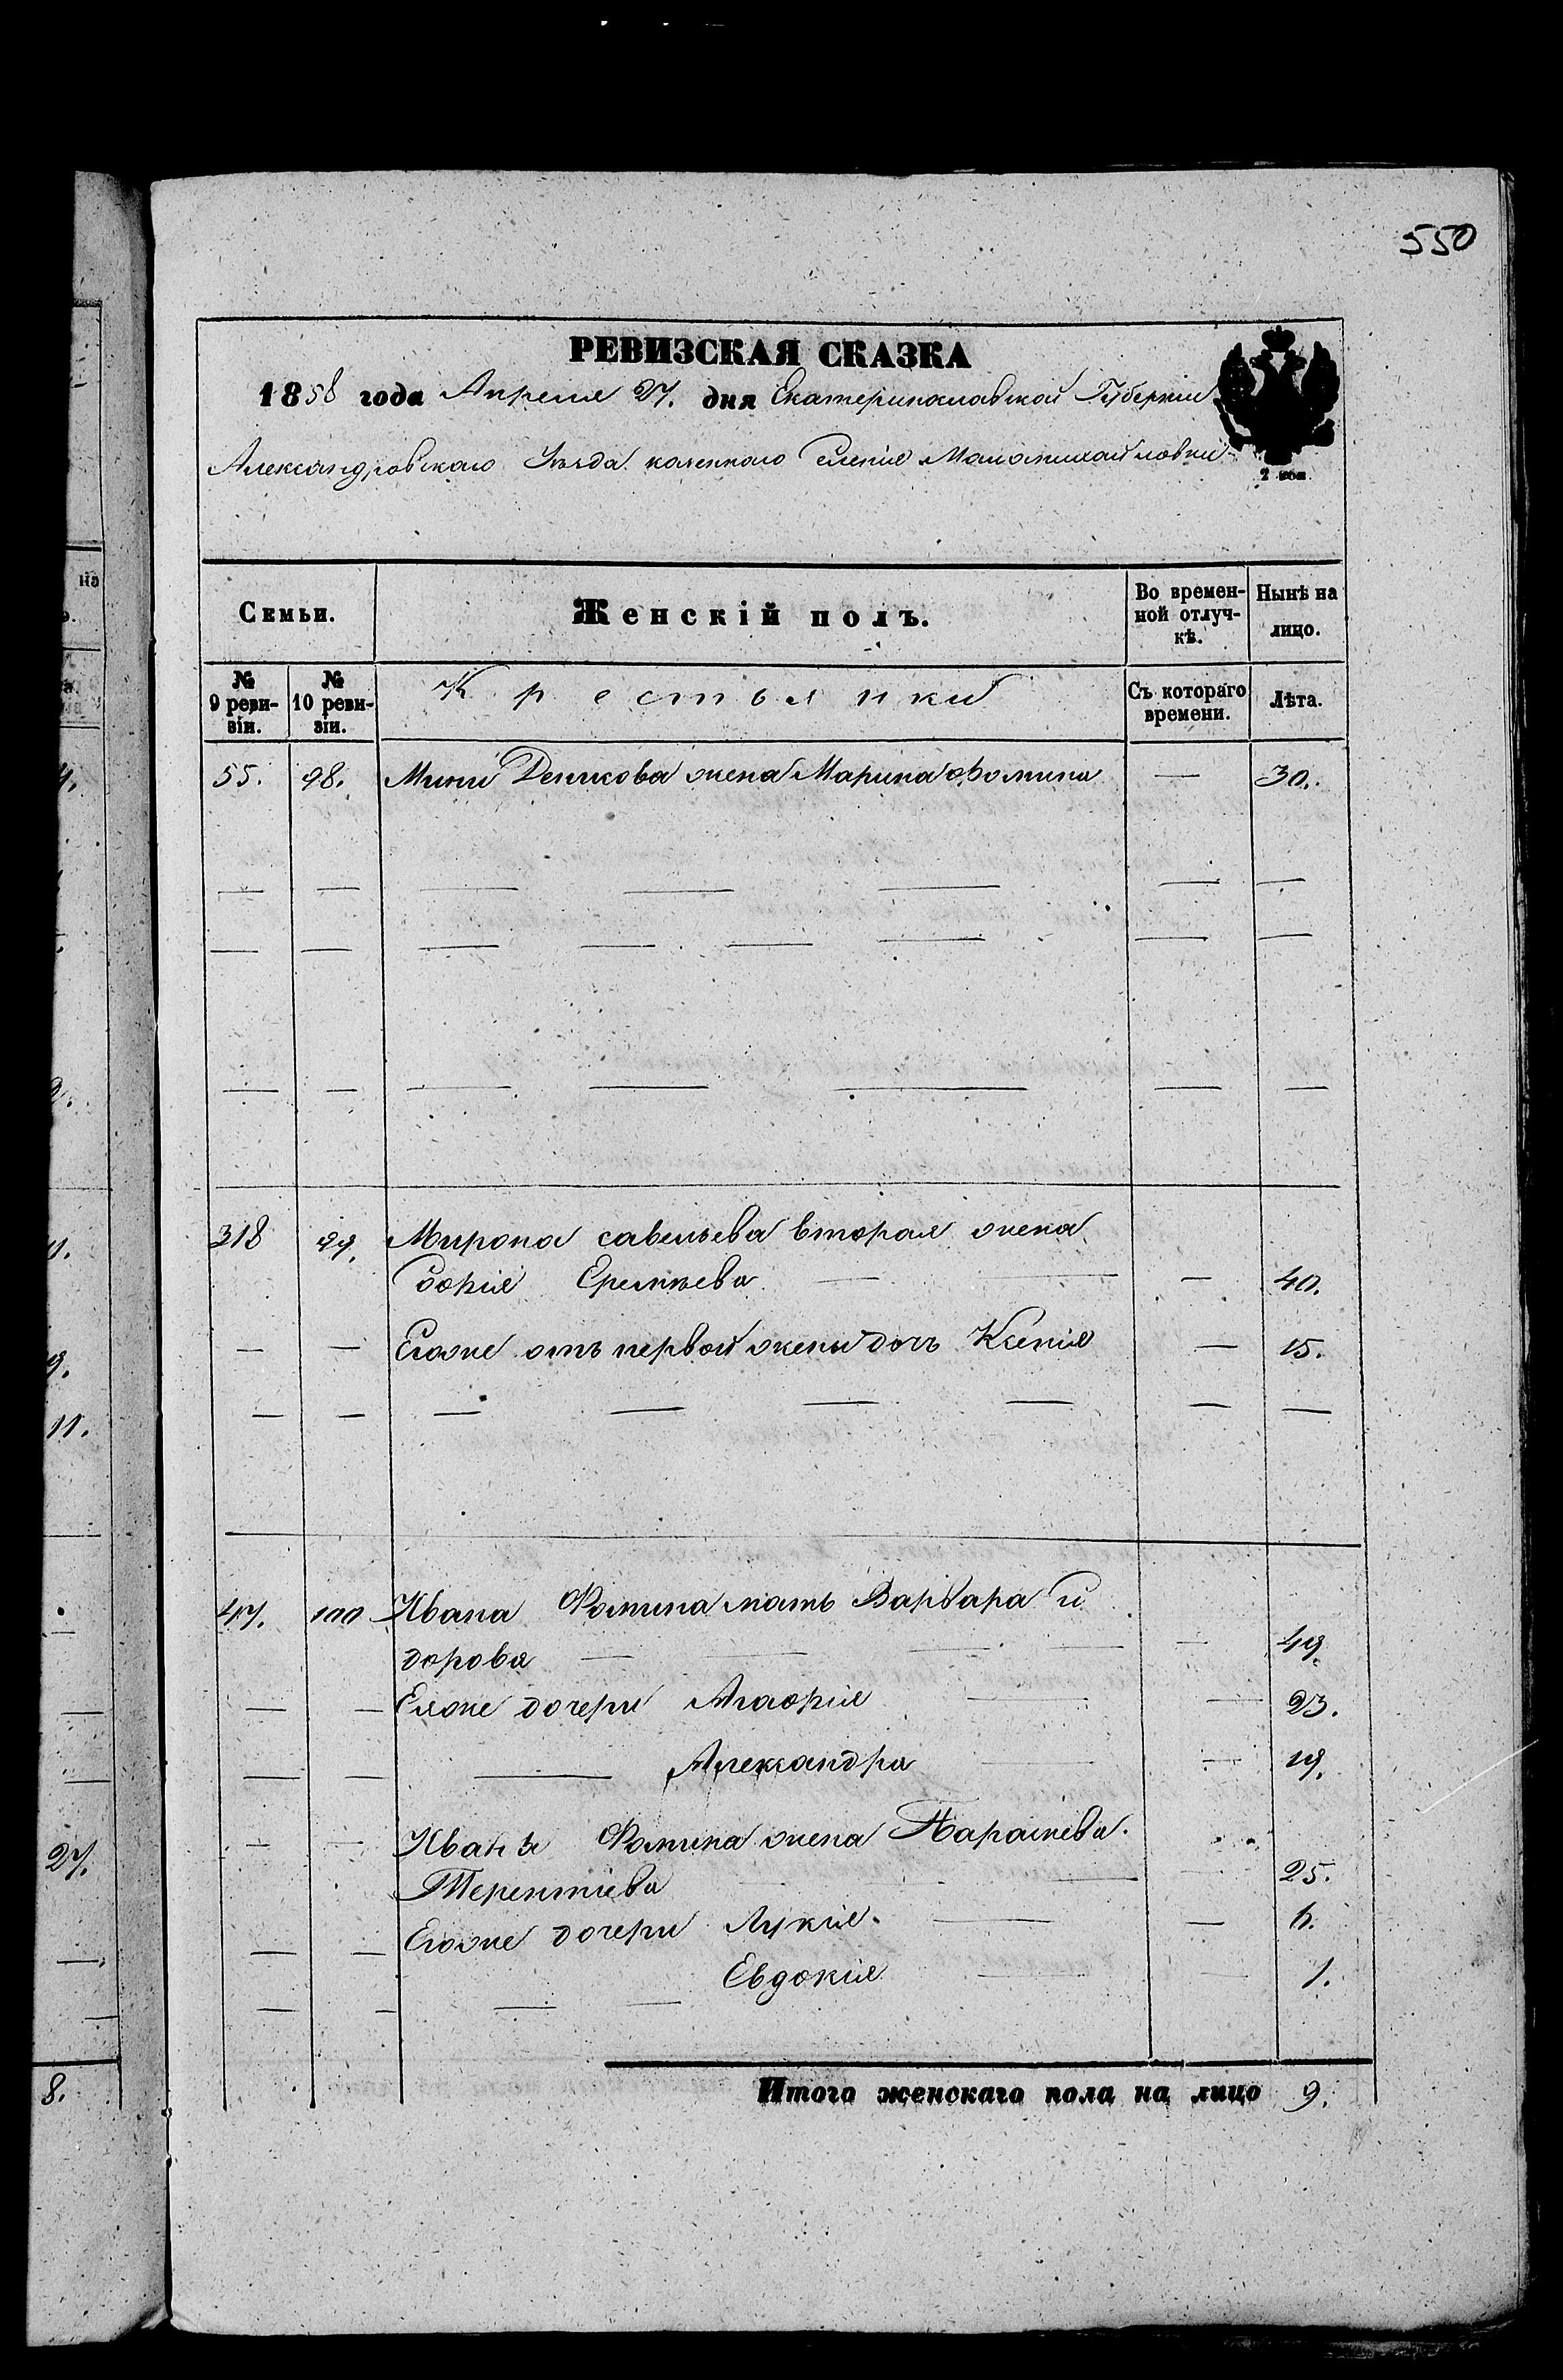 550
РЕВИЗСКАЯ СКАЗКА
1858 года Апреля 27. дня Екатеринославской Губерніи
Александровскаго Уезда казеннаго Селенія Маломихайловки
2 коп.
Семьи. Женскій полъ. Во временной отлучкѣ. Нынѣ на лицо.
№ 9 ревизіи. № 10 ревизіи. Крестьянки Съ котораго времени. Лѣта.
55. 98. Мины Деникова жена Марина Фомина — 30.
318 99. Мирона савельева вторая жена
Софія Еремѣева — 40.
— — Егоже отъ первой жены дочь Ксенія — 15.
47. 100 Ивана Фомина мать Варвара и
дорова — 49.
— — Еяже дочери Агафія — 23.
— — — Александра — 19.
— — Ивана Фомина жена Параскева
Терентіева — 25.
— — Егоже дочери Лукія. — 6.
— — — Евдокія — 1.
Итого женскаго пола на лицо 9.
на
11.
27.
8.